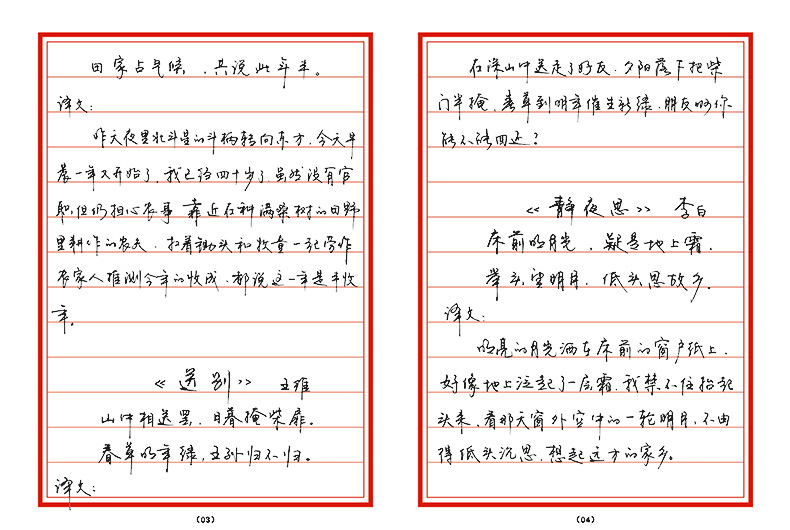 田家占气候,共说此年丰。
译文:
昨天夜里北斗星的斗柄转向东方,今天早
晨一年又开始了,我已经四十岁了虽然没有官
职,但仍担心农事 靠近在种满桑树的田野
里耕作的农夫,扛着锄头和牧童一起劳作
农家人推测今年的收成,都说这一年是丰收
年。
《送别》 王维
山中相送罢,日暮掩柴扉。
春草明年绿,王孙归不归。
译文:
(03)
在深山中送走了好友,夕阳落下把柴
门半掩,春草到明年催生新绿,朋友啊你
能不能回还?
《静夜思》 李白
床前明月光,疑是地上霜,
举头望明月,低头思故乡。
译文:
明亮的月光洒在床前的窗户纸上,
好像地上泛起了一层霜,我禁不住抬起
头来,看那天窗外空中的一轮明月,不由
得低头沉思,想起远方的家乡。
(04)